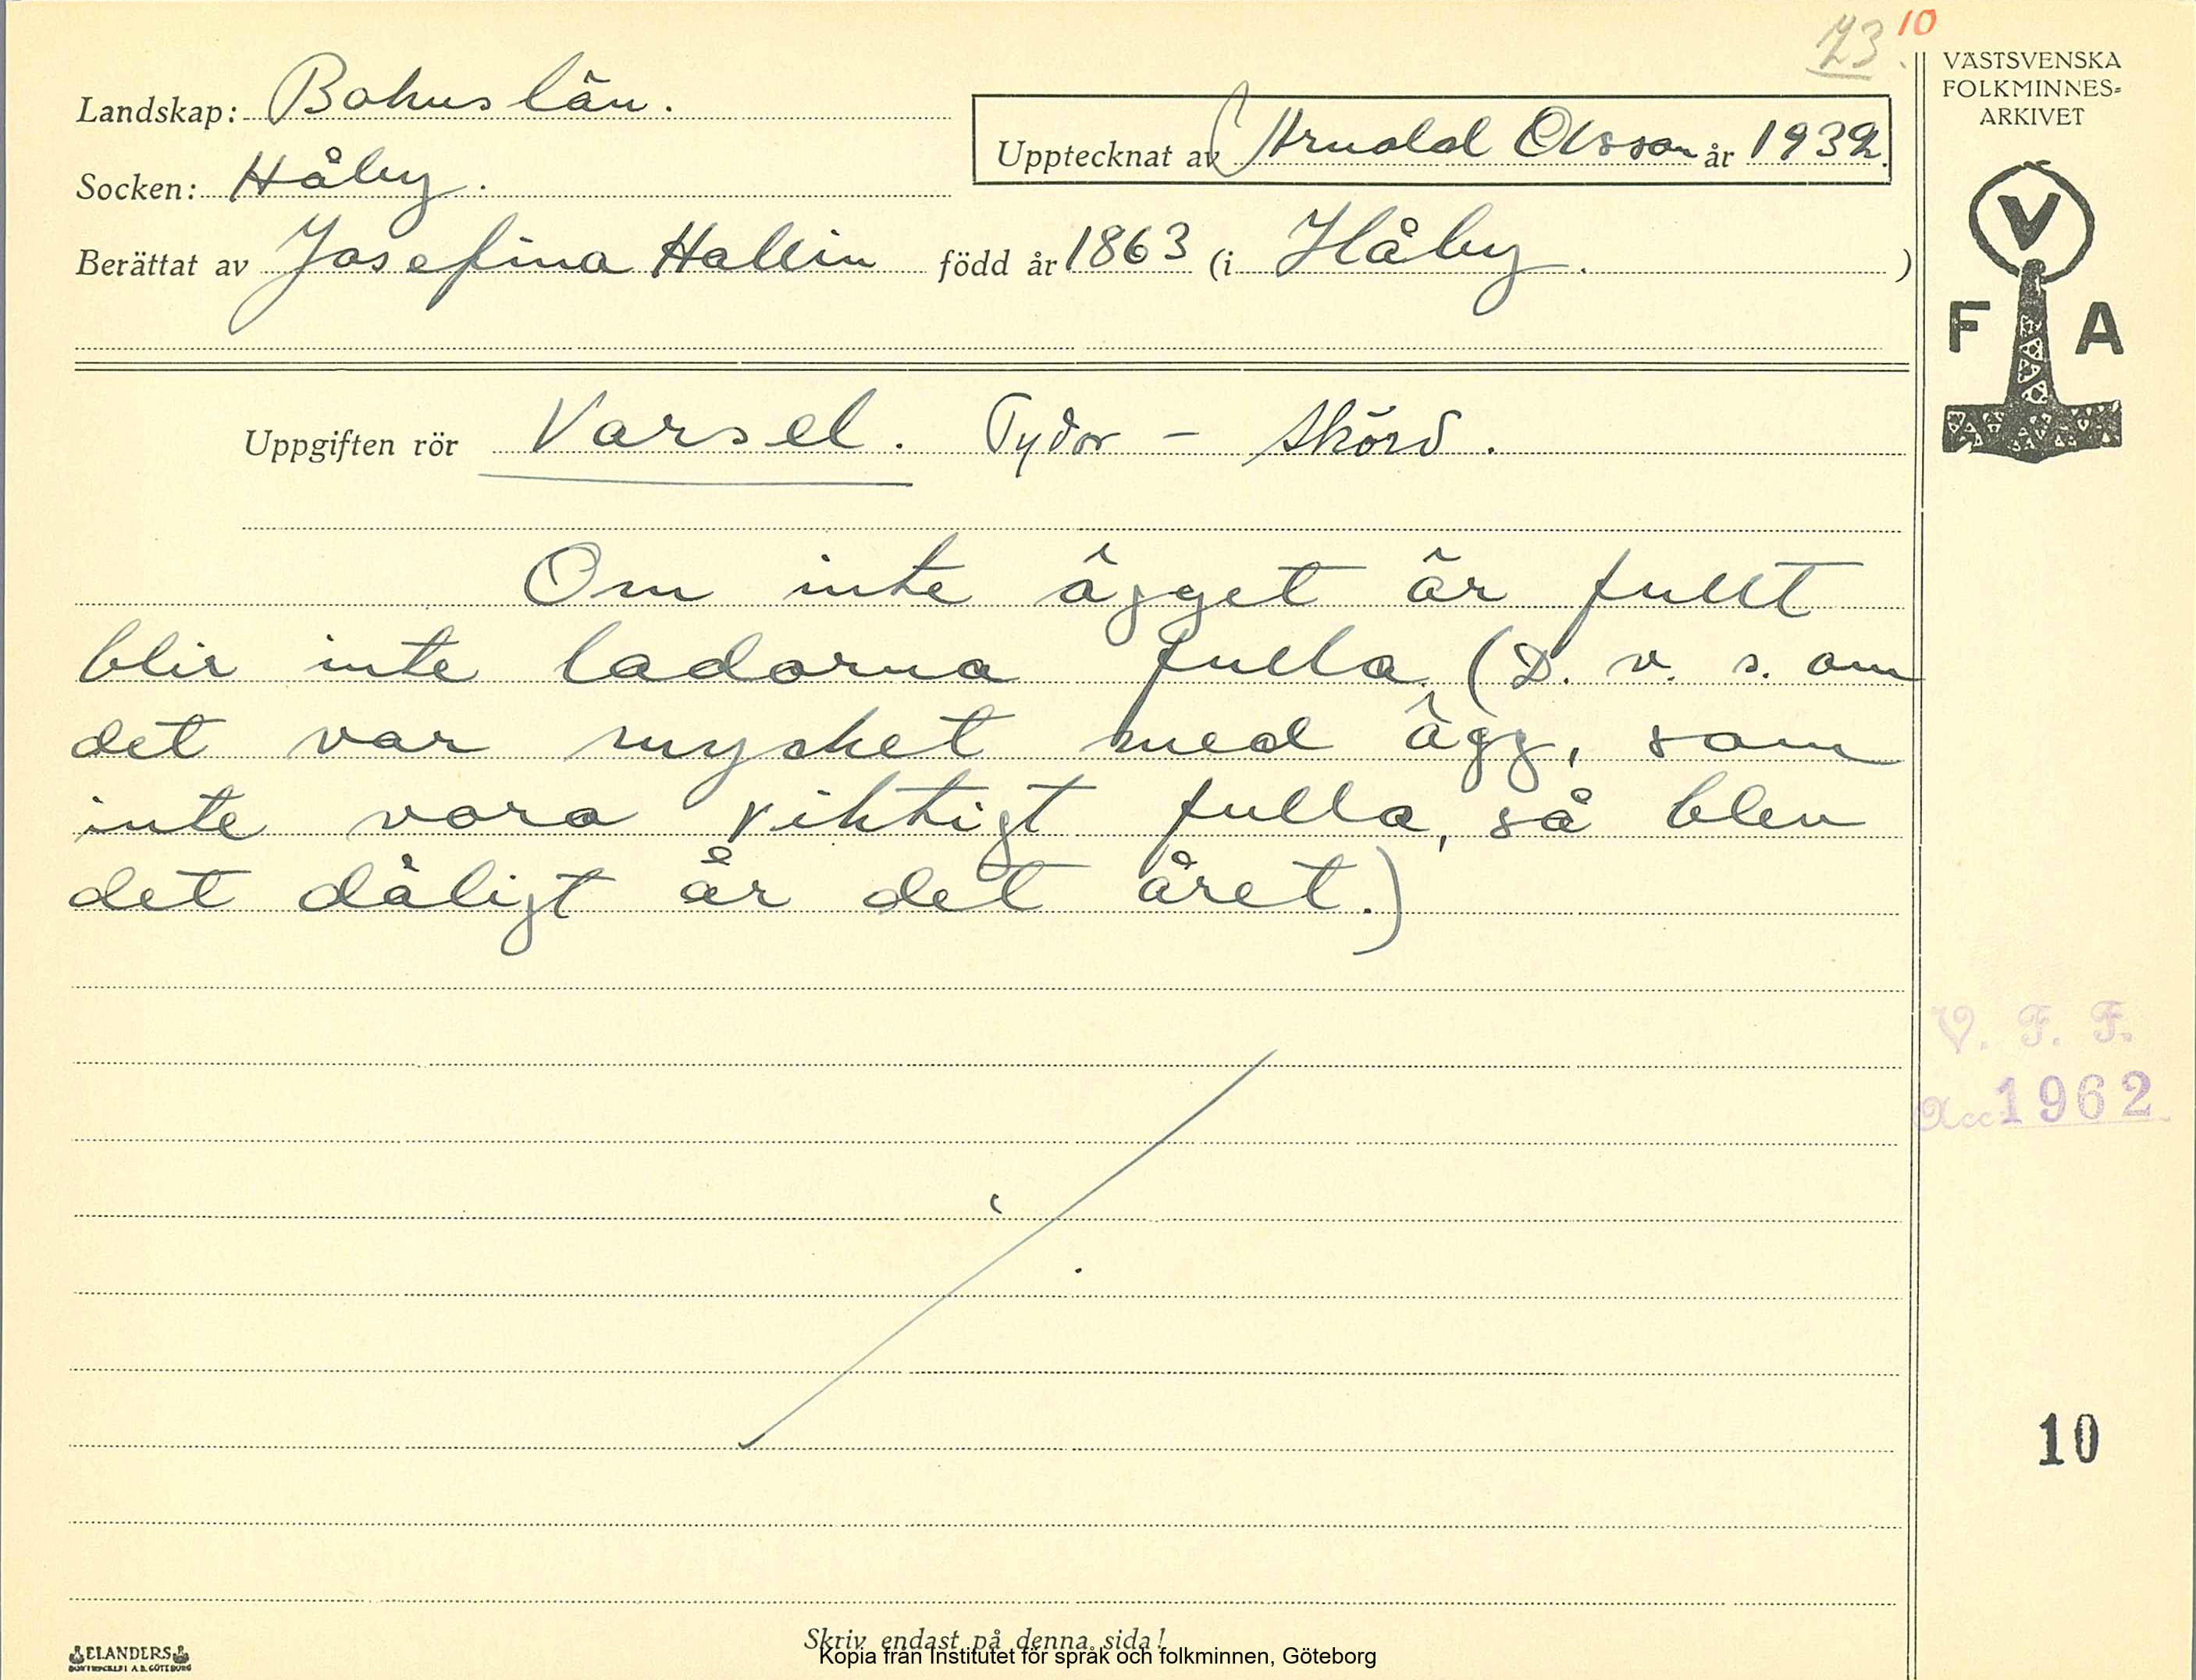 23. 10
VÄSTSVENSKA
FOLKMINNES=
ARKIVET
Landskap: Bohuslän.
Upptecknat av Arnold Olsson år 1932.
Socken: Håby.
Berättat av Josefina Hallin född år 1863 (i Håby. )
V
F A
Uppgiften rör Varsel. Tydor - Skörd.
Om inte ägget är fullt
blir inte ladorna fulla. (D. v. s. om
det var mycket med ägg, som
inte vora riktigt fulla, så blev
det dåligt år det året.)
V. F. F.
Acc 1962
10
Skriv endast på denna sida!
Kopia från Institutet för språk och folkminnen, Göteborg
ELANDERS
BOKTRYCKERI A.B. GÖTEBORG